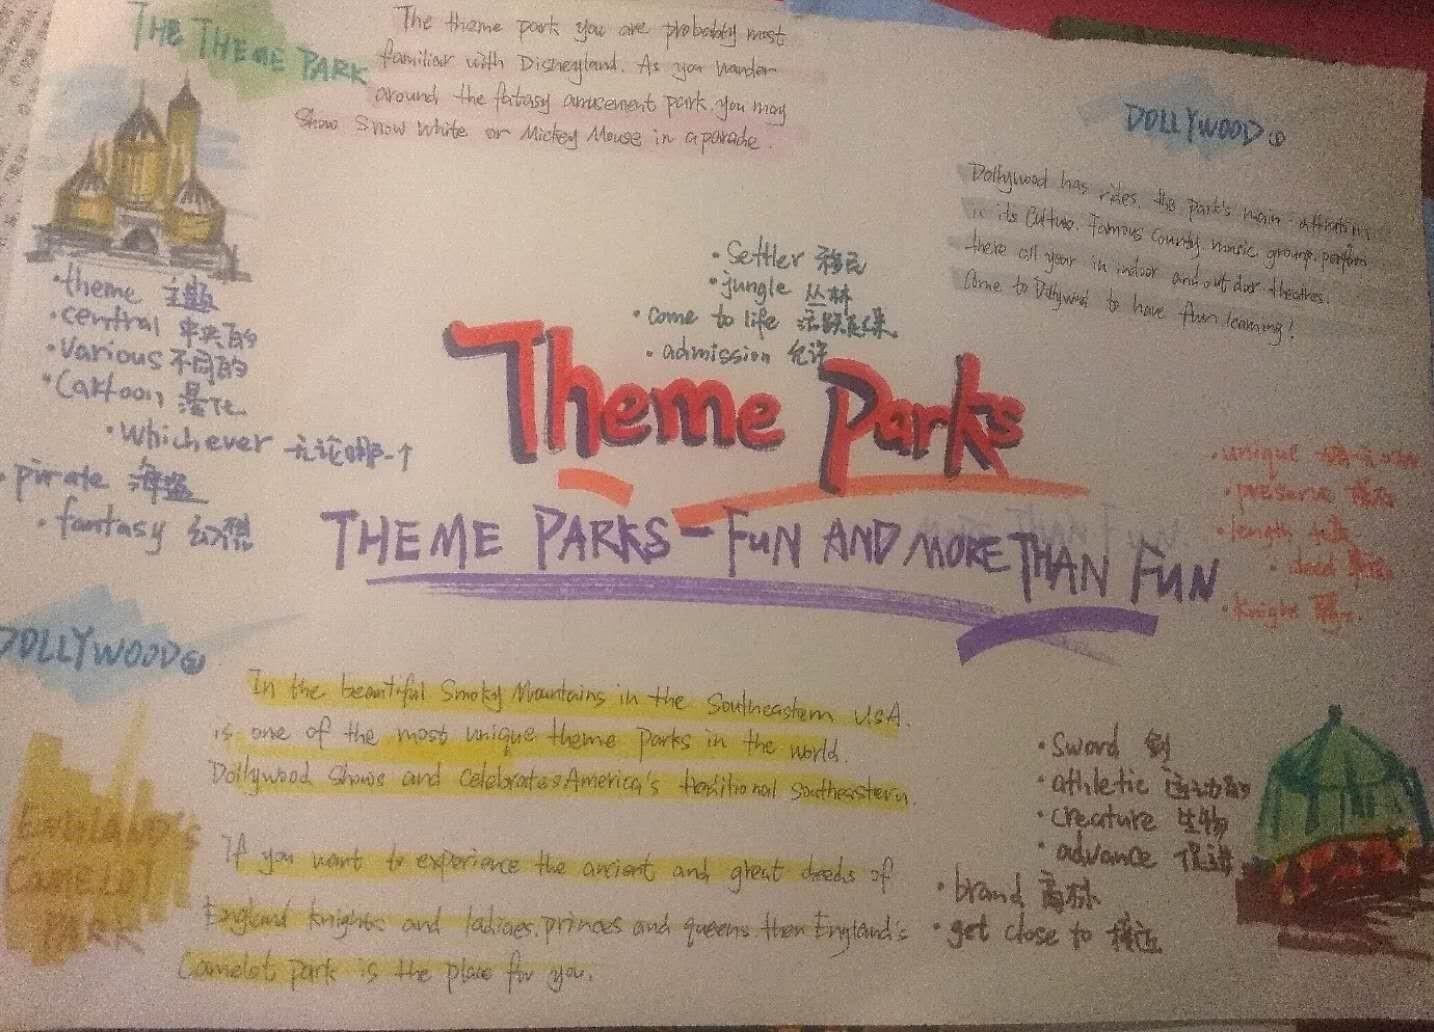 THE THEME PARK
The theme park you are probably most
familiar with Disneyland. As you wander
around the fatasy amusement park. you may
show Snow White or Mickey Mouse in a parade.
DOLLYWOOD ①
Dollywood has rides. the park's main attraction
is its Culture. Famous County music groups perform
there all year in indoor and out door theatres.
Come to Dollywood to have fun learning!
·theme 主题
·central 中央的
·various 不同的
·Cartoon 漫
·whichever 无论哪一个
·pirate 海盗
·fantasy 幻想
·settler 移民
·jungle 丛林
·come to life 活跃起来
·admission 允许
Theme Parks
THEME PARKS - FUN AND MORE THAN FUN
·unique
·preserve
·length
·deed
·knight 骑士
DOLLYWOOD ②
In the beautiful Smoky Mountains in the Southeastern USA.
is one of the most unique theme parks in the world.
Dollywood shows and celebrates America's traditional southeastern.
ENGLAND'S
CAMELOT
PARK
If you want to experience the ancient and great deeds of
England knights and ladiaes, princes and queens. then England's
Camelot park is the place for you.
·sword 剑
·athletic 运动的
·creature 生物
·advance 促进
·brand 商标
·get close to 接近